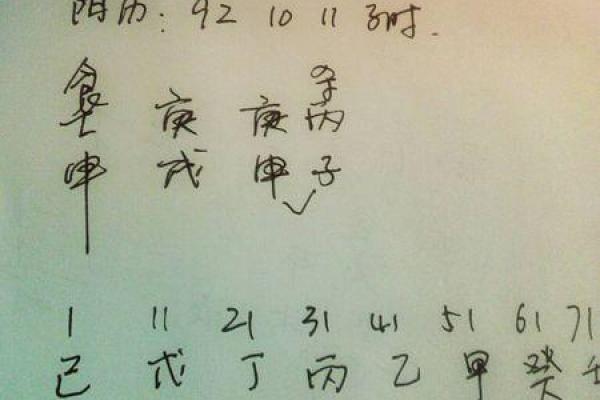 阳历: 92 10 11 子时.
食 杀
壬 庚 庚 丙
申 戌 申 子
1 11 21 31 41 51 61 71
己 戊 丁 丙 乙 甲 癸